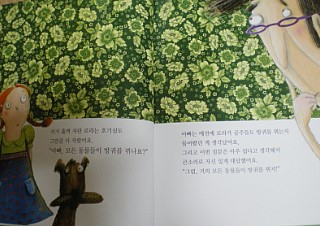 키가 훌쩍 자란 로라는 호기심도
그만큼 더 자랐어요.
"아빠, 모든 동물들이 방귀를 뀌나요?"
아빠는 예전에 로라가 공주들도 방귀를 뀌는지
물어봤던 게 생각났어요.
그리고 이번 질문은 아주 쉽다고 생각해서
큰소리로 자신 있게 대답했어요.
"그럼, 거의 모든 동물들이 방귀를 뀌지!"